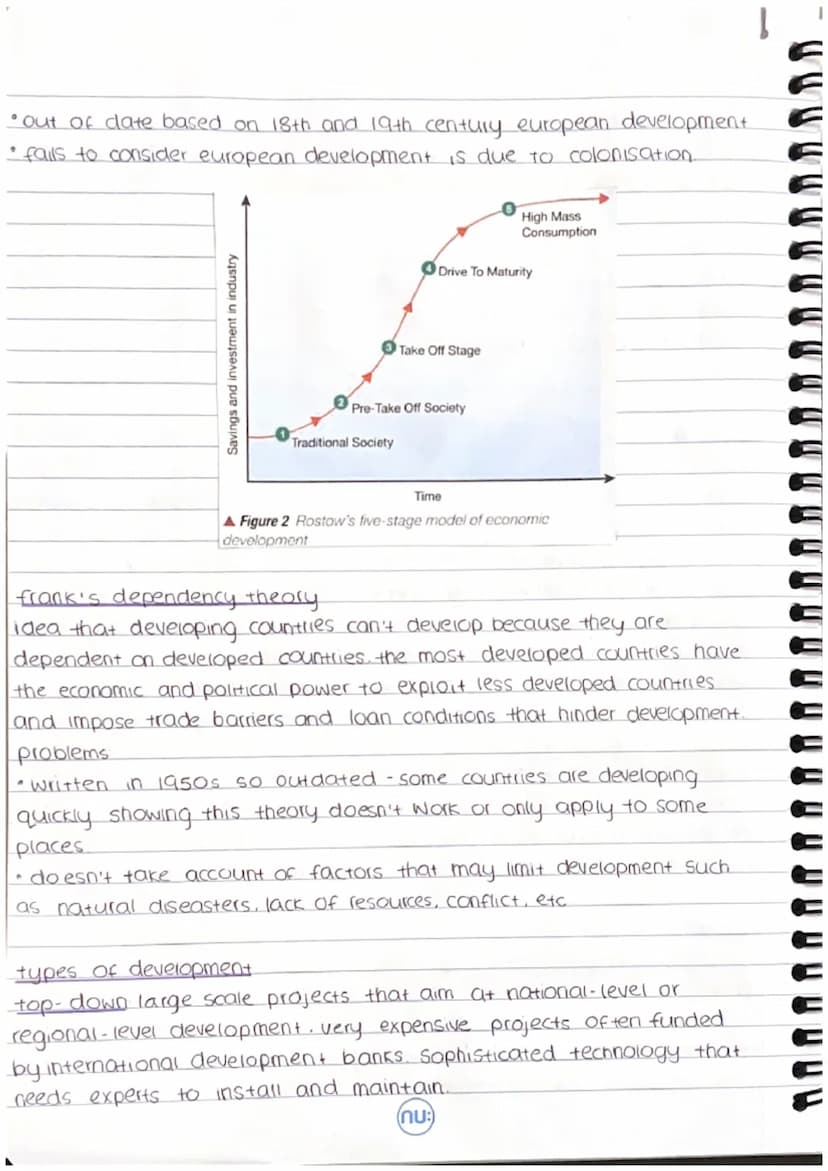 • out of date based on 18th and 19th century european development
• fails to consider european development is due to colonisation
Savings and investment in industry
5
High Mass
Consumption
4 Drive To Maturity
3 Take Off Stage
2 Pre-Take Off Society
1 Traditional Society
Time
▲ Figure 2 Rostow's five-stage model of economic
development
frank's dependency theory
idea that developing countries can't develop because they are
dependent on developed countries. the most developed countries have
the economic and political power to exploit less developed countries
and impose trade barriers and loan conditions that hinder development.
problems
• written in 1950s so outdated - some countries are developing
quickly showing this theory doesn't work or only apply to some
places
• doesn't take account of factors that may limit development such
as natural diseasters, lack of resources, conflict, etc
types of development
top-down large scale projects that aim at national-level or
regional-level development. very expensive projects often funded
by international development banks. sophisticated technology that
needs experts to install and maintain.
nu: